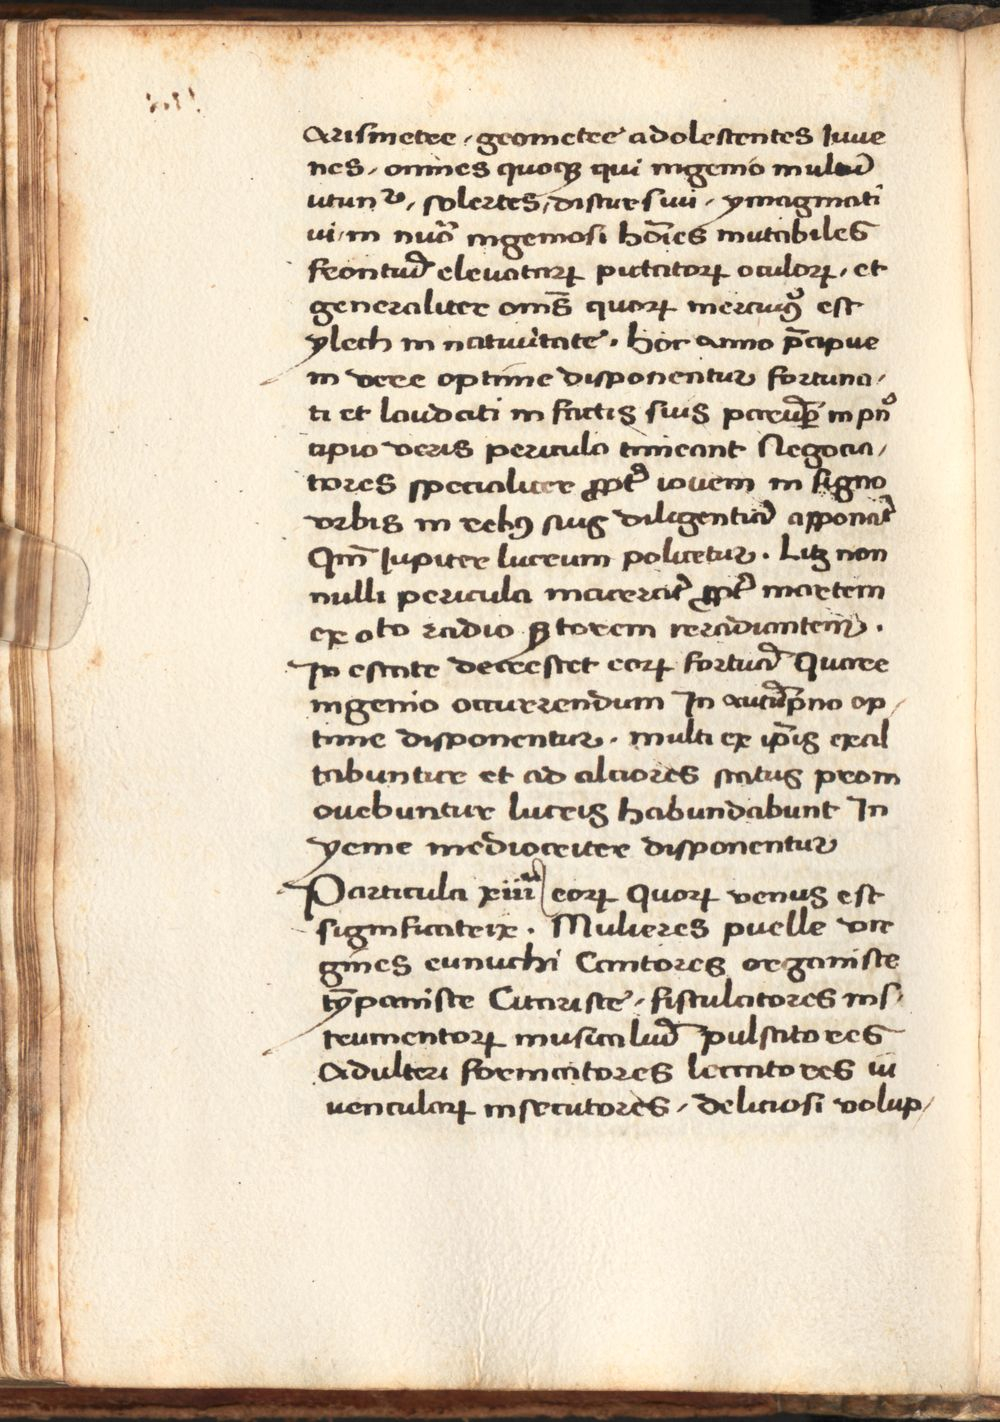 Arismetre, geometre adolescentes Iuue
nes, omnes quoque qui ingenio multum̄
utunt᷑, solertes, discursiui, ymaginati
ui, in nūo ingeniosi hoīes mutabiles
frontiū eleuatarꝝ putatorꝝ oculorꝝ, et
generaliter om̄s quorꝝ mercuriꝰ est
ylech in natiuitate. hoc anno p̄cipue
in vere optime disponentur fortuna,
ti et laudati in factis suis parūper in pn̄
cipio veris pericula timeant Negocia,
tores specialiter ꝓpt᷑ iouem in signo
vrbis in rebꝰ suis diligentiā apponāt
Qm̄ Iupiter lucrum policetur. Lꝫ non
nulli pericula macerāt ꝓpt᷑ martem
ex oto radio torem reradiantem.
In estate decrescet eorꝝ fortūa Quare
ingenio occurrendum In autūpno op,
time disponentur. multi ex ip̄is exal
tabuntur et ad alciores status prom
ouebuntur lucris habundabunt In
yeme mediocriter disponentur
Particula xiiii eorꝝ quorꝝ venus est
significatrix. Mulieres puelle vir
gines eunuchi Cantores organiste
tȳpaniste Citariste, fistulatores ins,
trumentorꝝ musicaliū pulsatores
Adulteri fornicatores leccatores iu
uencularꝝ insecutores, deliciosi volup,